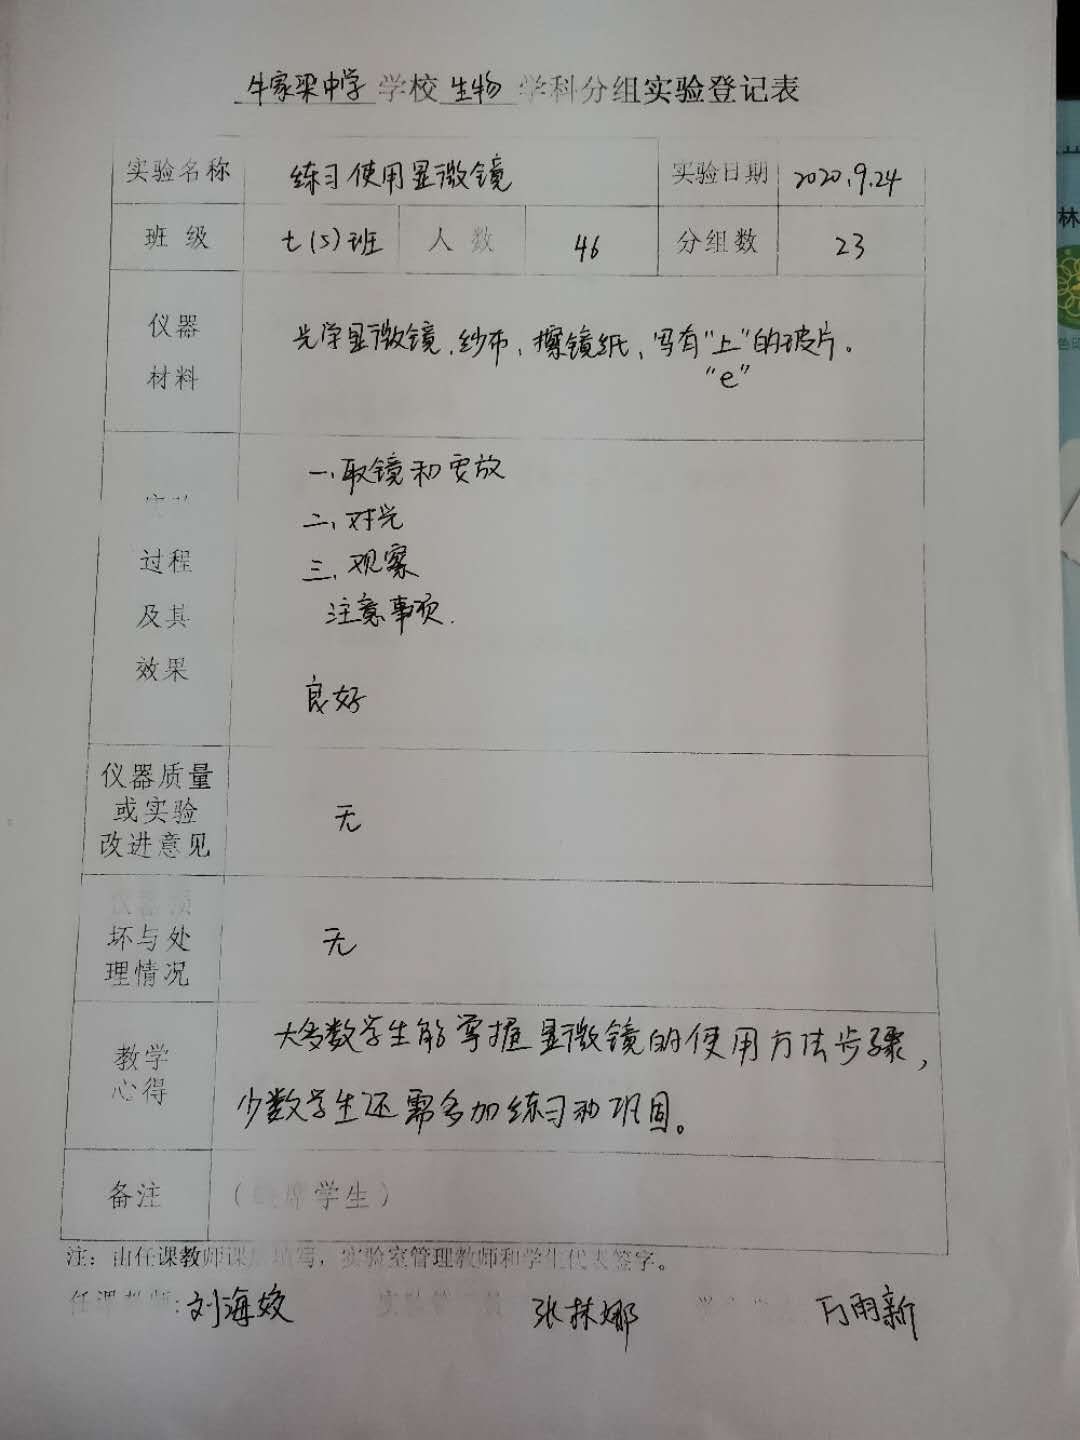 牛家梁中学 学校 生物 学科分组实验登记表
实验名称 练习使用显微镜 实验日期 2020.9.24
班 级 七(5)班 人 数 46 分组数 23
仪器
材料
光学显微镜、纱布、擦镜纸、写有"上"的玻片。
"e"
一、取镜和安放
二、对光
三、观察
注意事项.
良好
过程
及其
效果
仪器质量
或实验
改进意见
无
坏与处
理情况
无
教学
心得
大多数学生能掌握显微镜的使用方法步骤,
少数学生还需多加练习和巩固。
备注 ( 学生)
注: 由任课教师课后填写, 实验室管理教师和学生代表签字。
任课教师: 刘海姣 张林娜 雨新
林